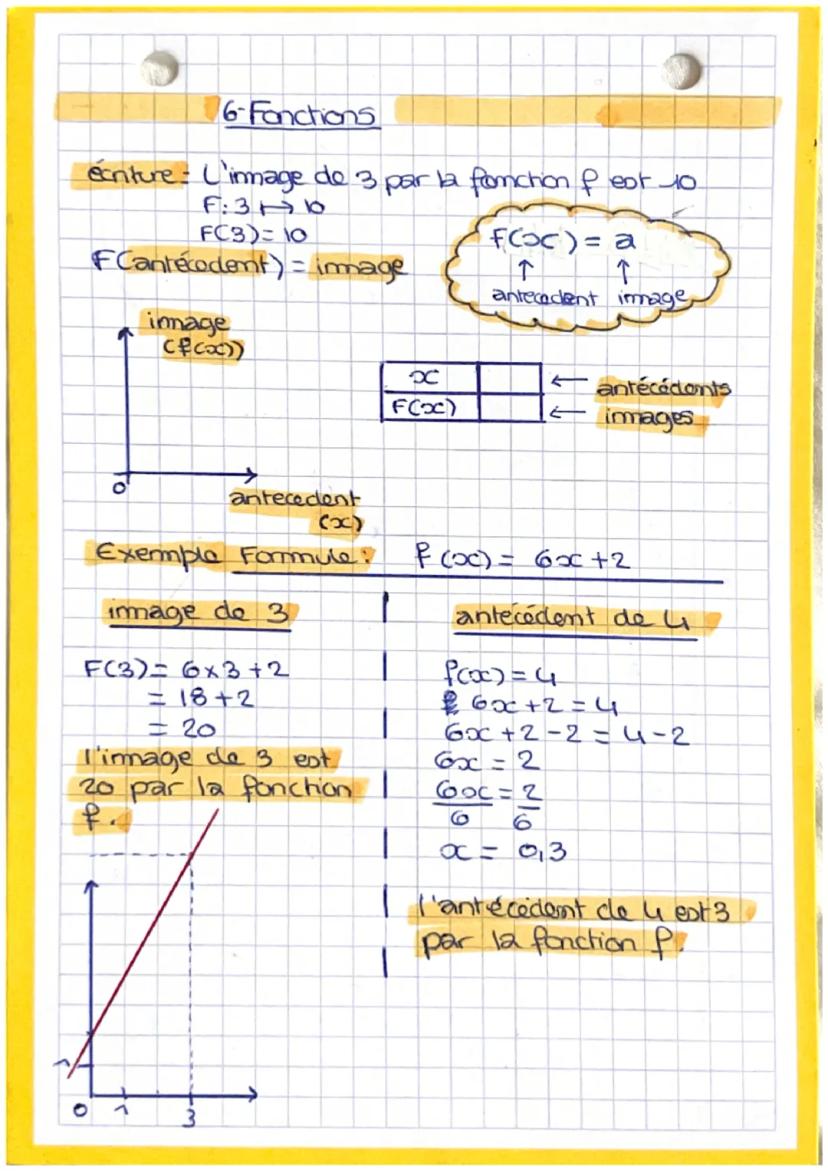 6-Fonctions
écriture: L'image de 3 par la fonction f est 10
F: 3 ↦ 10
F(3)=10
F(antécédent) = image
f(x) = a
↑ ↑
antecedent image
image
(f(x))
0
antecedent
(x)
x ← antécédents
F(x) ← images
Exemple Formule: f(x) = 6x+2
image de 3
F(3)= 6×3+2
= 18+2
= 20
l'image de 3 est
20 par la fonction
f.
1
0 1 3
antécédent de 4
f(x)=4
6x+2=4
6x+2-2=4-2
6x=2
6x/6=2/6
x= 0,3
l'antécédent de 4 est 3
par la fonction f.